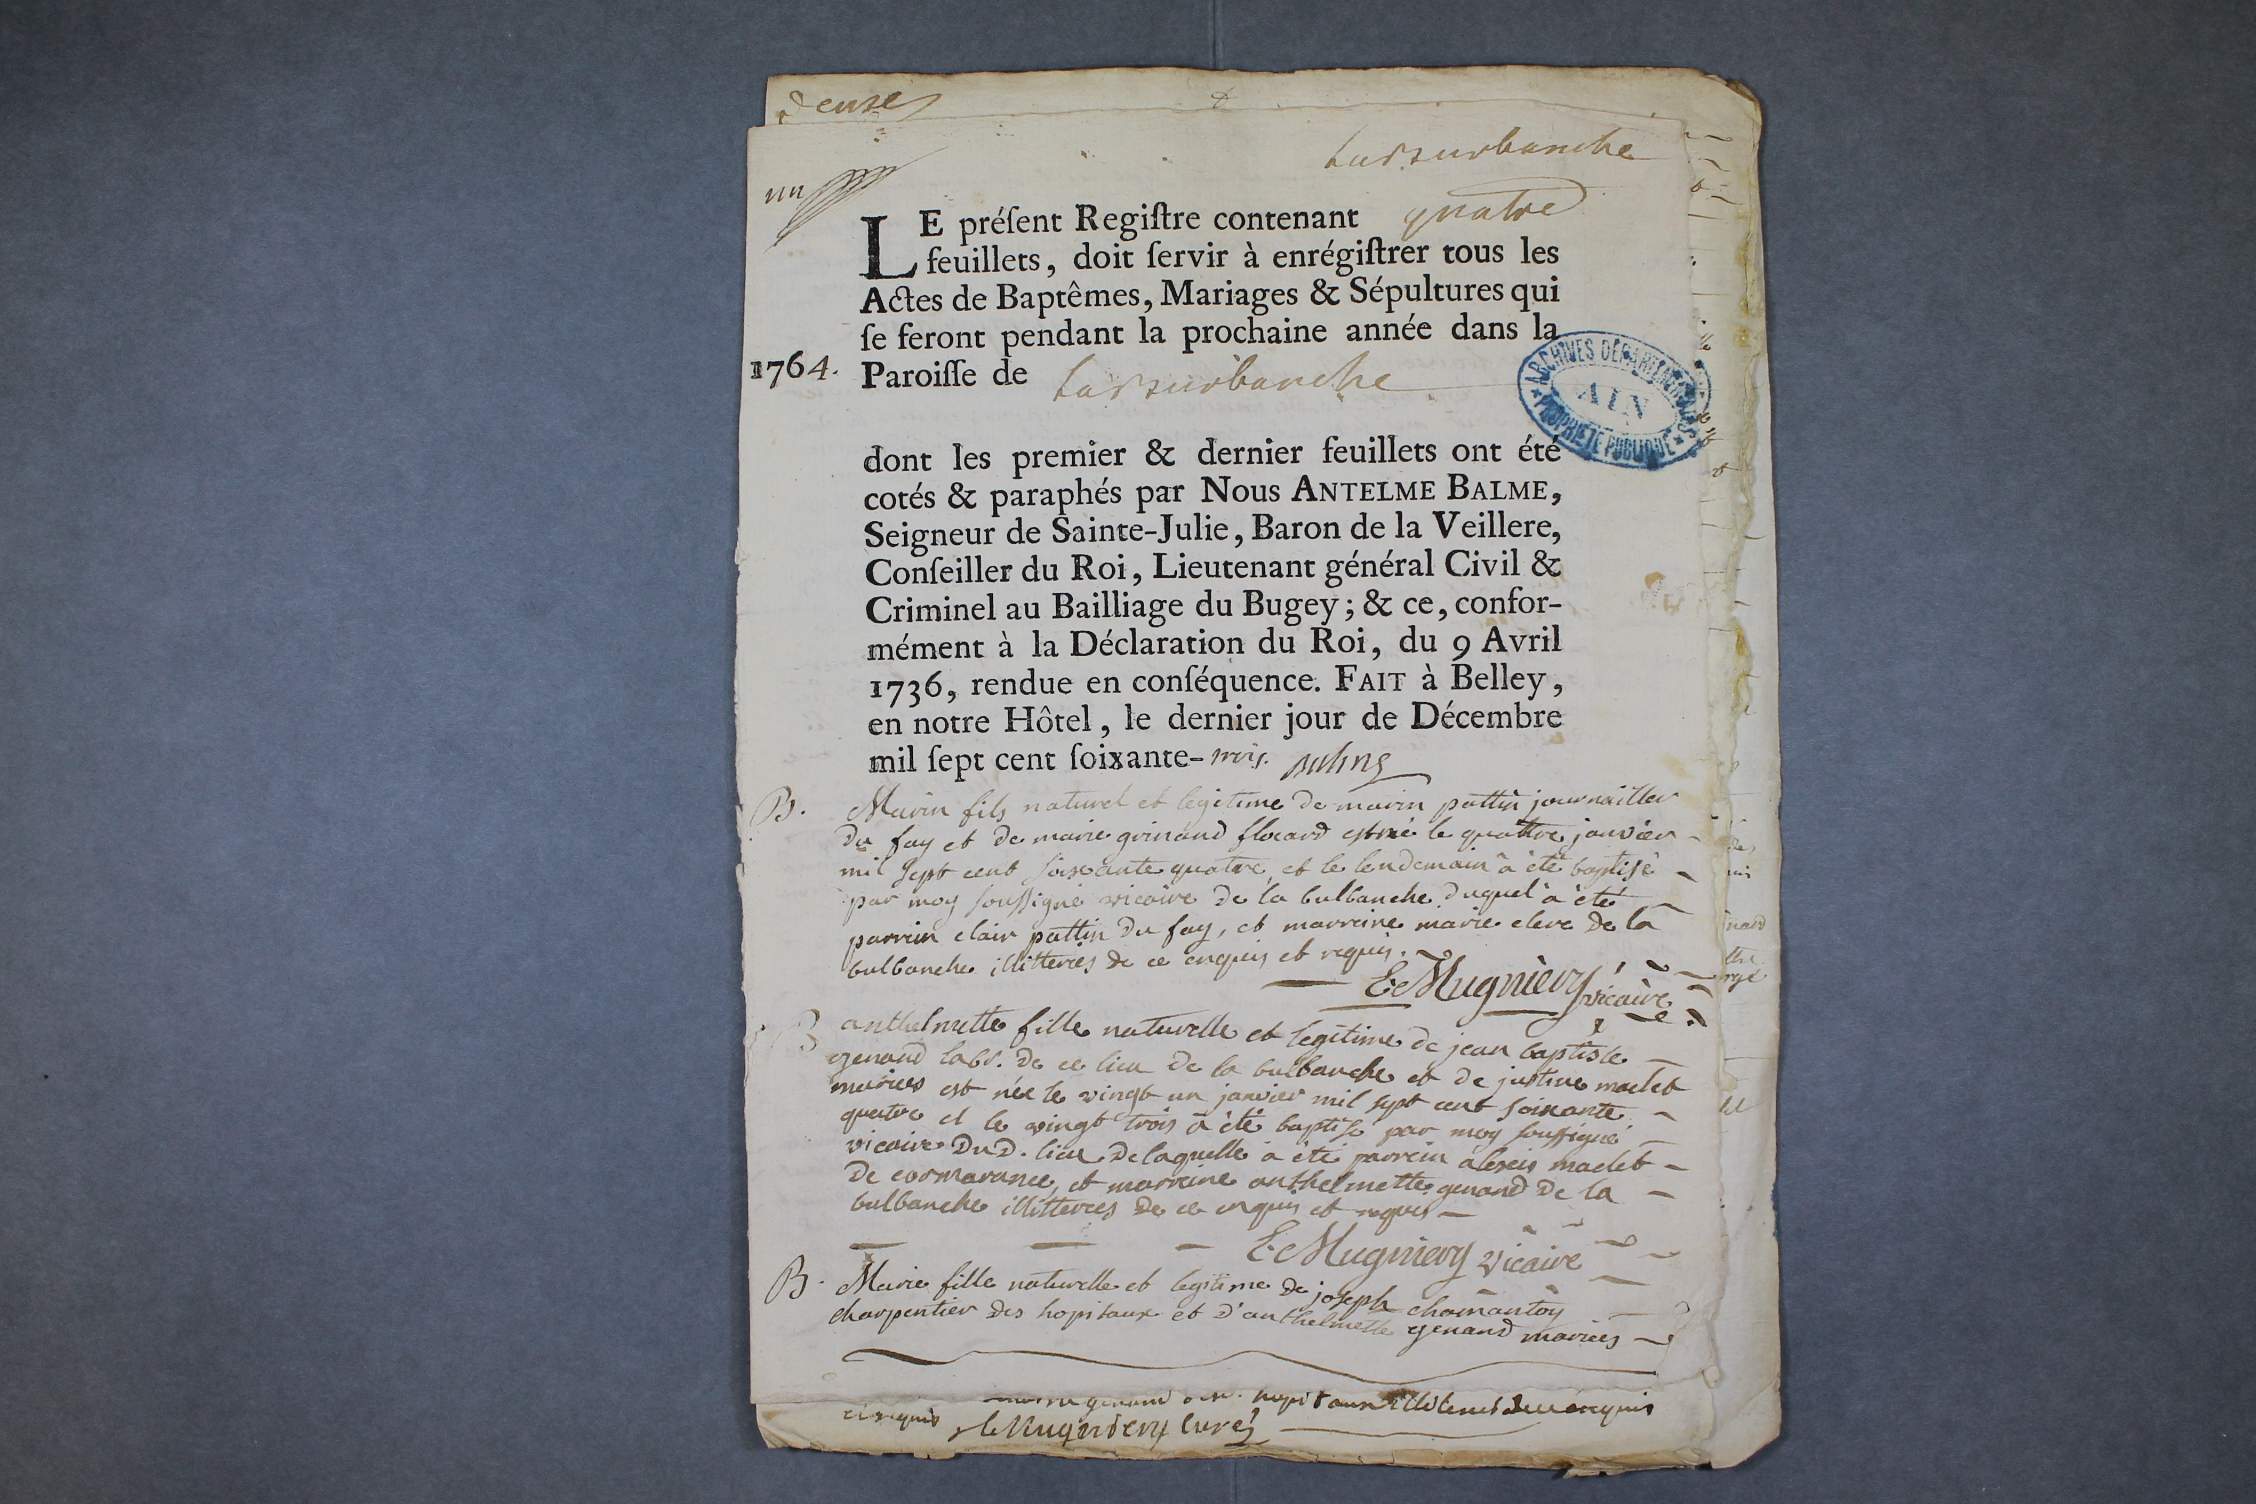 un
quatre
LE préſent Regiſtre contenant
feuillets, doit ſervir à enrégiſtrer tous les
Actes de Baptêmes, Mariages & Sépultures qui
ſe feront pendant la prochaine année dans la
1764. Paroiſſe de
ARCHIVES DÉPARTEMENTALES
AIN
PROPRIÉTÉ PUBLIQUE
dont les premier & dernier feuillets ont été
cotés & paraphés par Nous ANTELME BALME,
Seigneur de Sainte-Julie, Baron de la Veillere,
Conſeiller du Roi, Lieutenant général Civil &
Criminel au Bailliage du Bugey ; & ce, confor-
mément à la Déclaration du Roi, du 9 Avril
1736, rendue en conſéquence. FAIT à Belley,
en notre Hôtel, le dernier jour de Décembre
mil ſept cent ſoixante-trois.
B. Marin fils naturel et legitime de marin pattin journallier
du fay et de marie grinand flocard est né le quattre janvier
mil sept cent soixante quatre, et le lendemain à été baptisé
par moy soussigné vicaire de la bulbanche duquel à été
parrein clair pattin du fay, et marreine marie clerc de la
bulbanche illitterés de ce enquis et requis.
E. Mugniery vicaire
B anthelmette fille naturelle et legitime de jean baptiste
genand labr. de ce lieu de la bulbanche et de justine maclet
mariés est née le vingt un janvier mil sept cent soixante
quatre et le vingt trois à été baptisé par moy soussigné
vicaire dud. lieu de laquelle à été parrein alexis maclet
de cormarance, et marreine anthelmette genand de la
bulbanche illitterés de ce enquis et requis
E. Mugniery vicaire
B. Marie fille naturelle et legitime de joseph
charpentier des hopitaux et d'anthelmette genand mariés
genand hopitaux illiterés de ce enquis
et requis Mugniery curé